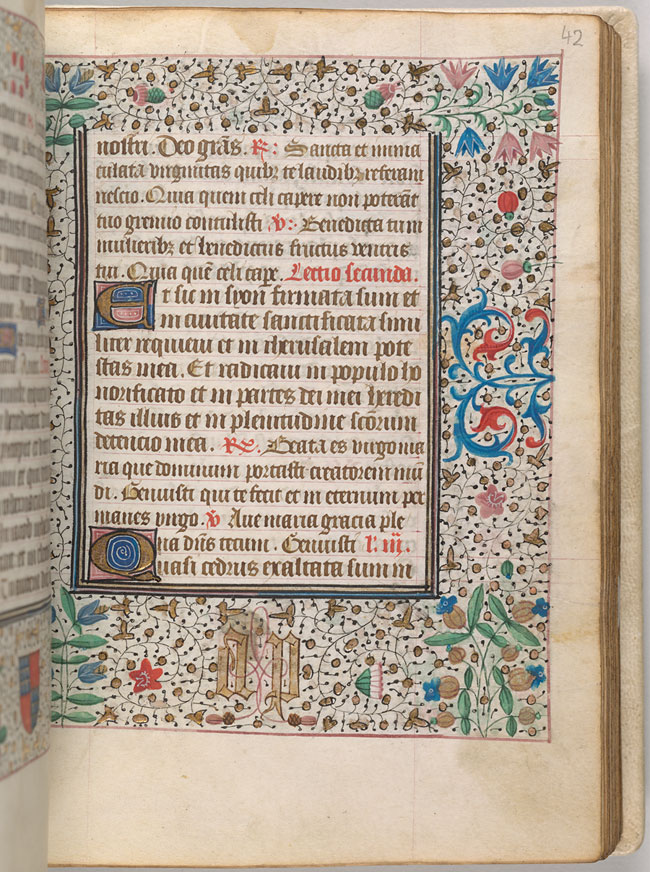 42
nostri. Deo grãs. R: Sancta et inma
culata virginitas quibꝫ te laudibꝫ referam
nescio. Quia quem celi capere non poterãt
tuo gremio contulisti V: Benedicta tu in
mulieribꝫ et benedictus fructus ventris
tui. Quia quẽ celi cape. Lectio secunda.
Et sic in syon firmata sum et
in civitate sanctificata simi
liter requievi et in iherusalem pote
stas mea. Et radicavi in populo ho
norificato et in partes dei mei heredi
tas illius et in plenitudine sc̃orum
detencio mea. Rx. Beata es virgo ma
ria que dominum portasti creatorem mũ
di. Genuisti qui te fecit et in eternum per
manes virgo. V Ave maria gracia ple
na dñs tecum. Genuisti l. iij.
Quasi cedrus exaltata sum in
a p